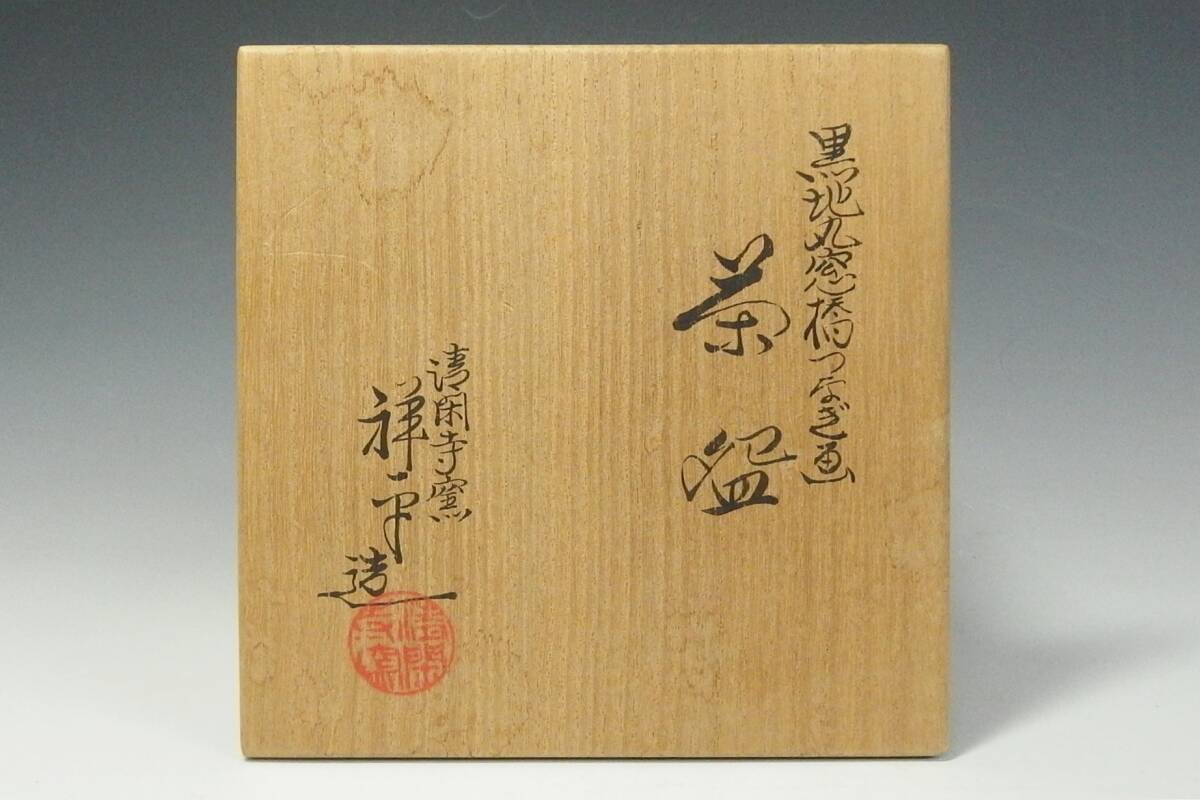 黒地丸窓橋つなぎ画
茶盌
清閑寺窯
祥平造
清閑寺窯